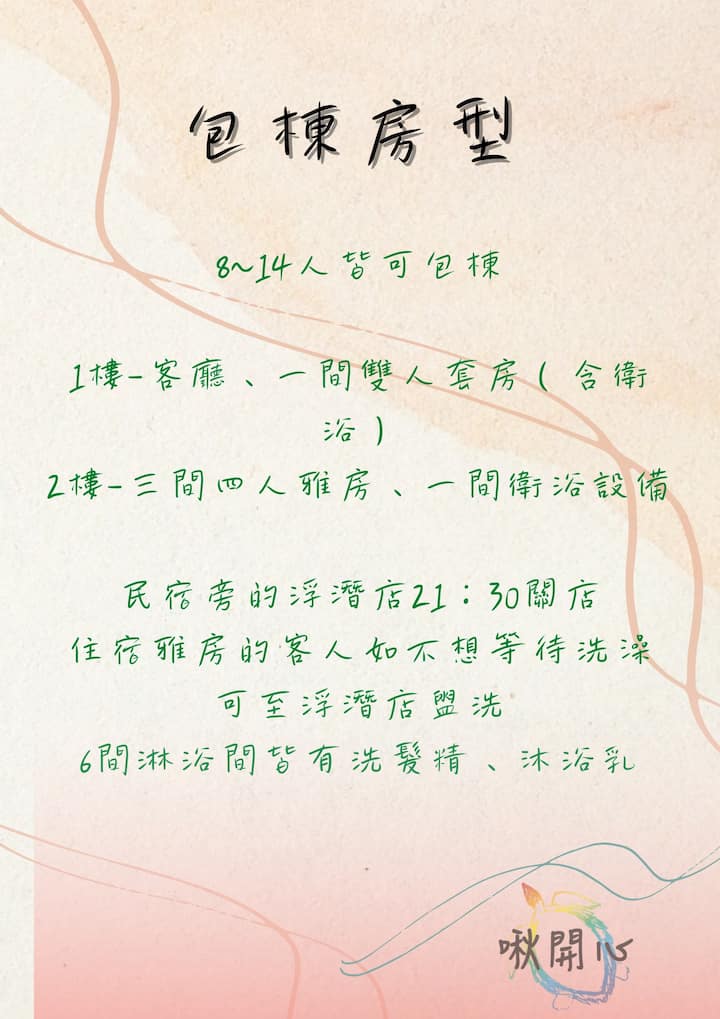 包棟房型
8~14人皆可包棟
1樓-客廳、一間雙人套房(含衛
浴)
2樓-三間四人雅房、一間衛浴設備
民宿旁的浮潛店21：30關店
住宿雅房的客人如不想等待洗澡
可至浮潛店盥洗
6間淋浴間皆有洗髮精、沐浴乳
啾開心